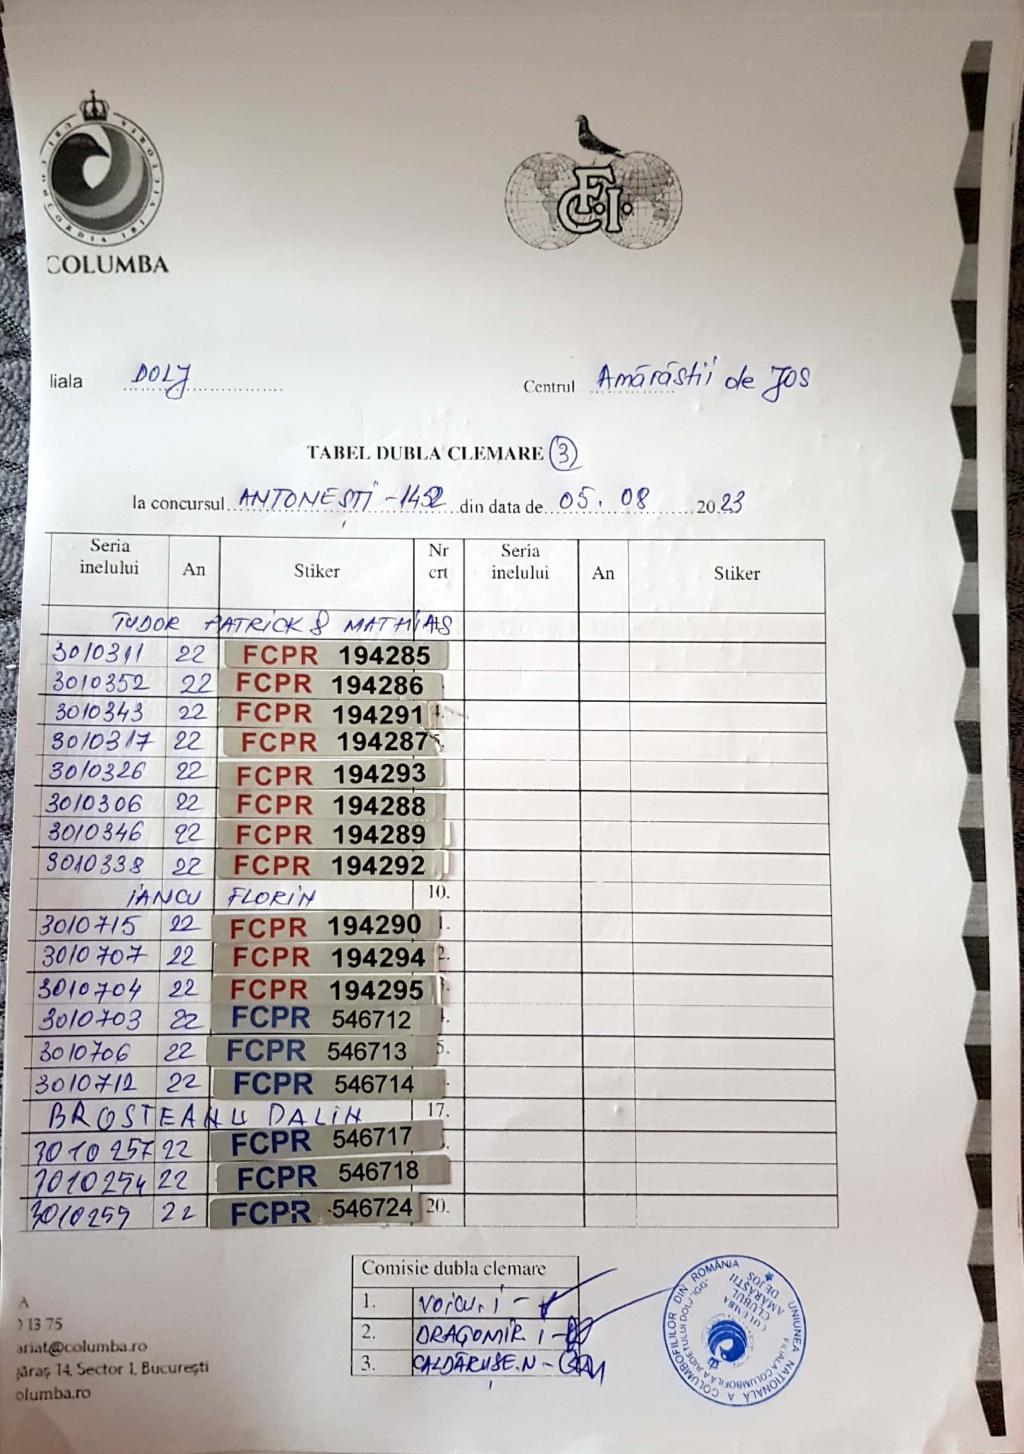 COLUMBA
F.C.I.
liala DOLJ Centrul Amărăștii de JOS
TABEL DUBLA CLEMARE 3
la concursul ANTONEȘTI - 1452 din data de 05. 08 2023
Seria inelului An Stiker Nr crt Seria inelului An Stiker
TUDOR PATRICK & MATHIAS
3010311 22 FCPR 194285
3010352 22 FCPR 194286
3010343 22 FCPR 194291 4.
3010317 22 FCPR 194287 5.
3010326 22 FCPR 194293
3010306 22 FCPR 194288
3010346 22 FCPR 194289
3010338 22 FCPR 194292
IANCU FLORIN 10.
3010715 22 FCPR 194290 1.
3010707 22 FCPR 194294 2.
3010704 22 FCPR 194295
3010703 22 FCPR 546712
3010706 22 FCPR 546713 5.
3010712 22 FCPR 546714
BROSTEANU DALIN 17.
3010257 22 FCPR 546717
1010254 22 FCPR 546718
3010259 22 FCPR 546724 20.
Comisie dubla clemare
1. VOICU. I -
2. DRAGOMIR. I -
3. CALDĂRUSE.N -
UNIUNEA NAȚIONALĂ A COLUMBOFILILOR DIN ROMÂNIA
FILIALA COLUMBOFILĂ A JUDEȚULUI DOLJ
CLUBUL COLUMBA AMĂRĂȘTII DE JOS
A
) 13 75
ariat@columba.ro
jăraș 14, Sector 1, București
olumba.ro